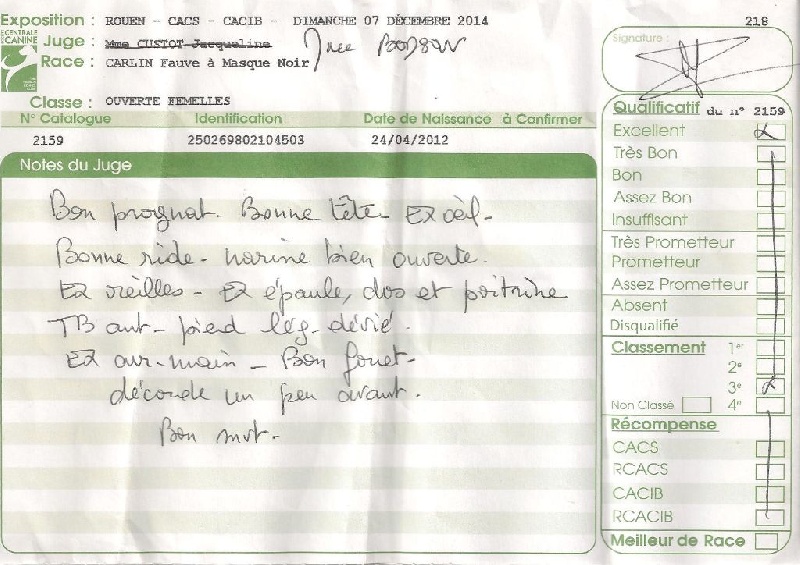 Exposition : ROUEN - CACS - CACIB - DIMANCHE 07 DÉCEMBRE 2014
218
CENTRALE CANINE
Juge : Mme CUSTOT Jacqueline
Race : CARLIN Fauve à Masque Noir
Signature :
Classe : OUVERTE FEMELLES
N° Catalogue Identification Date de Naissance à Confirmer
2159 250269802104503 24/04/2012
Notes du Juge
Bon prognat. Bonne tête. Ex cêl-
Bonne ride - narine bien ouverte.
Ex oreilles - Ex épaule, dos et poitrine
TB ant - pied lég dévié.
Ex arr-main - Bon fouet-
découde un peu avant.
Bon mvt.
Qualificatif du n° 2159
Excellent
Très Bon
Bon
Assez Bon
Insuffisant
Très Prometteur
Prometteur
Assez Prometteur
Absent
Disqualifié
Classement 1er
2e
3e
Non Classé 4e
Récompense
CACS
RCACS
CACIB
RCACIB
Meilleur de Race